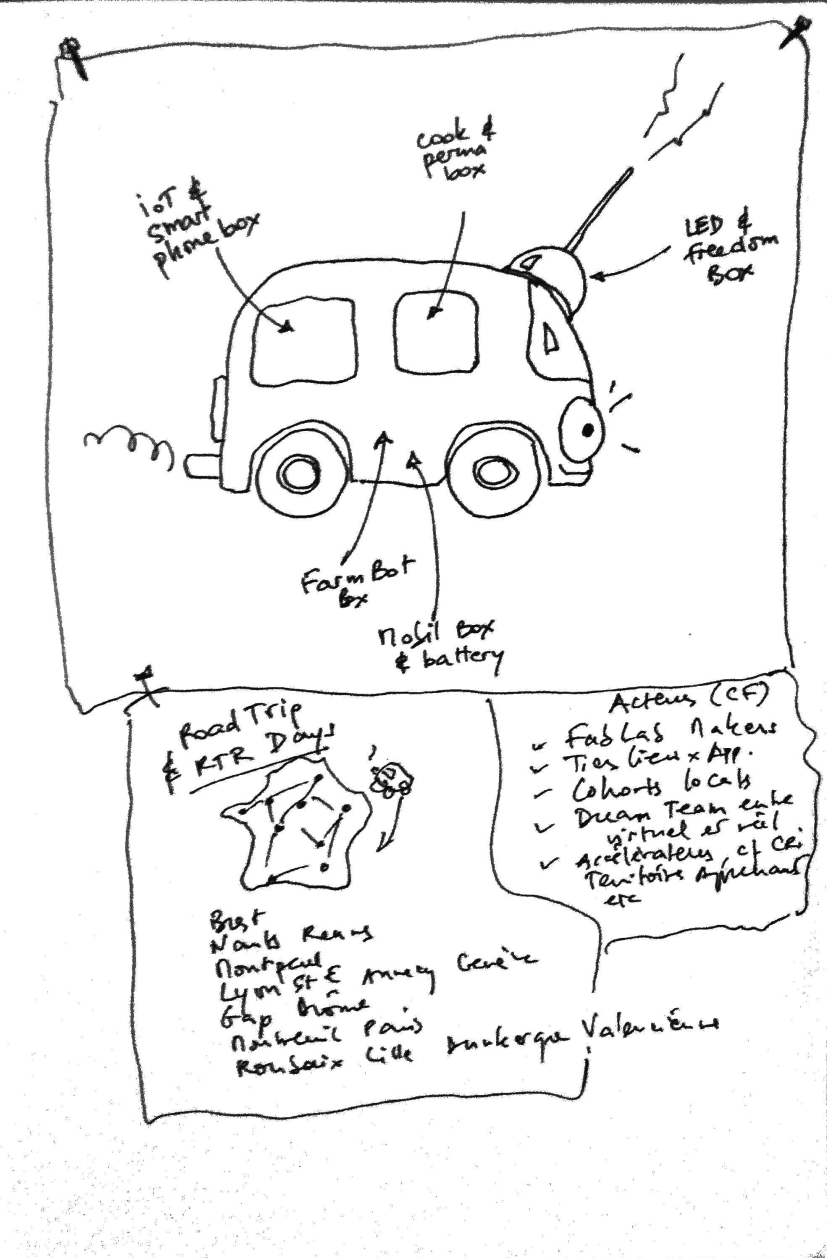 cook &
perma
box
ioT &
smart
phone box
LED &
freedom
Box
FarmBot
Box
Mobil Box
& battery
Road Trip
& RTR Days
Acteurs (CF)
FabLab Makers
Tiers lieux App.
Cohorts locals
Dream Team entre
virtuel et réel
Accélérateurs, cf CRi
Territoires Apprenants
etc
Brest
Nantes Rennes
Montpeul
Lyon St E Annecy Genève
Gap Drôme
Montreuil Paris
Roubaix Lille Dunkerque Valencienne